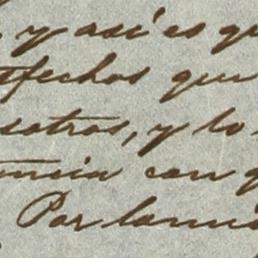 , y así es qu
tfechos que
sotros, y lo
ancia con q
Por lo mis